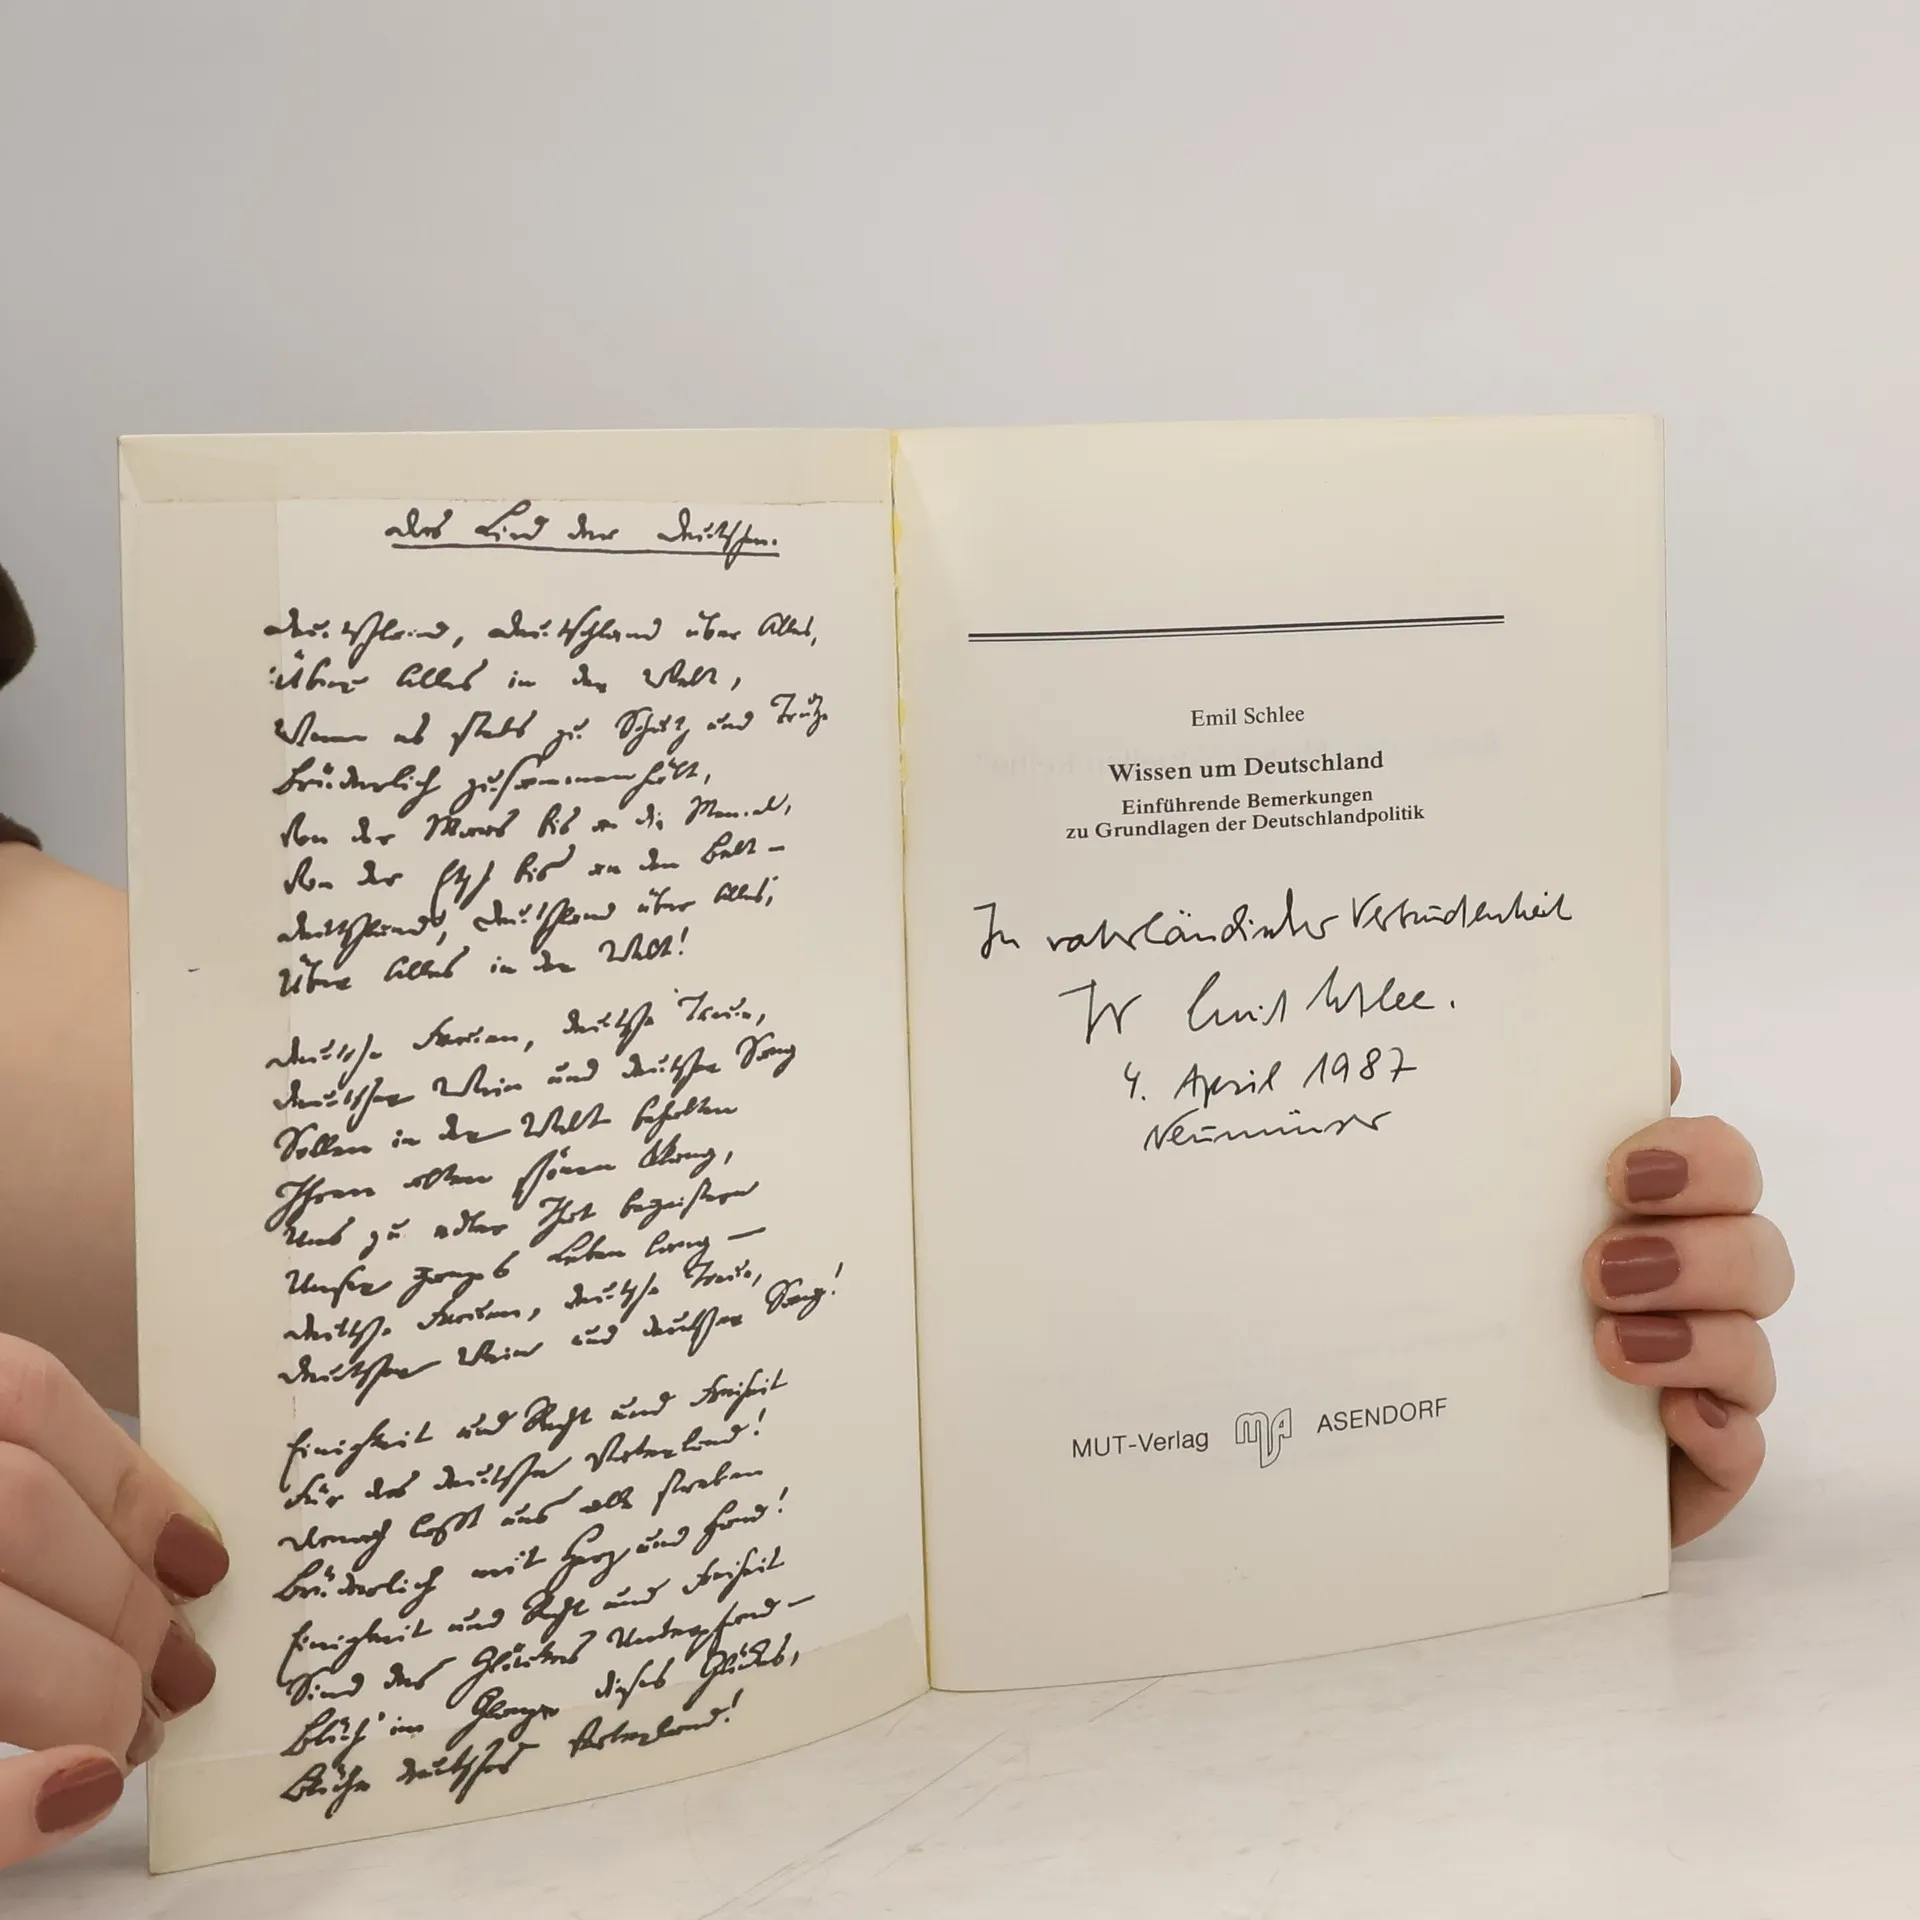 Das Lied der Deutschen.
Deutschland, Deutschland über Alles,
Über Alles in der Welt,
Wenn es stets zu Schutz und Trutz
Brüderlich zusammenhält,
Von der Maas bis an die Memel,
Von der Etsch bis an den Belt –
Deutschland, Deutschland über Alles,
Über Alles in der Welt!
Deutsche Frauen, deutsche Treue,
Deutscher Wein und deutscher Sang
Sollen in der Welt behalten
Ihren alten schönen Klang,
Uns zu edler That begeistern
Unser ganzes Leben lang –
Deutsche Frauen, deutsche Treue,
Deutscher Wein und deutscher Sang!
Einigkeit und Recht und Freiheit
Für das deutsche Vaterland!
Danach laßt uns alle streben
Brüderlich mit Herz und Hand!
Einigkeit und Recht und Freiheit
Sind des Glückes Unterpfand –
Blüh' im Glanze dieses Glückes,
Blühe deutsches Vaterland!
Emil Schlee
Wissen um Deutschland
Einführende Bemerkungen
zu Grundlagen der Deutschlandpolitik
In vaterländischer Verbundenheit
Ihr Emil Schlee.
4. April 1987
Neumünster
MUT-Verlag MA ASENDORF